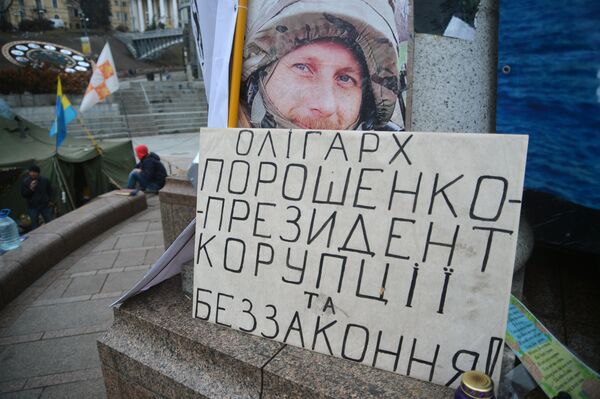 ОЛІГАРХ
ПОРОШЕНКО-
-ПРЕЗИДЕНТ
КОРУПЦІЇ
ТА
БЕЗЗАКОННЯ!